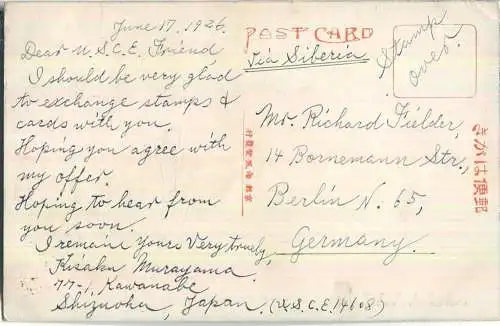 June 17, 1926.
Dear U.S.C.E. Friend
I should be very glad
to exchange stamps &
cards with you.
Hoping you agree with
my offer.
Hoping to hear from
you soon.
I remain Yours Very truely,
Kisaku Murayama
77-1, Kawanabe
Shizuoka, Japan. (U.S.C.E. 14608)
POST CARD
Via Siberia
Stamp
over.
Mr. Richard Fielder,
14 Bornemann Str.,
Berlin N. 65,
Germany.
きかは便郵